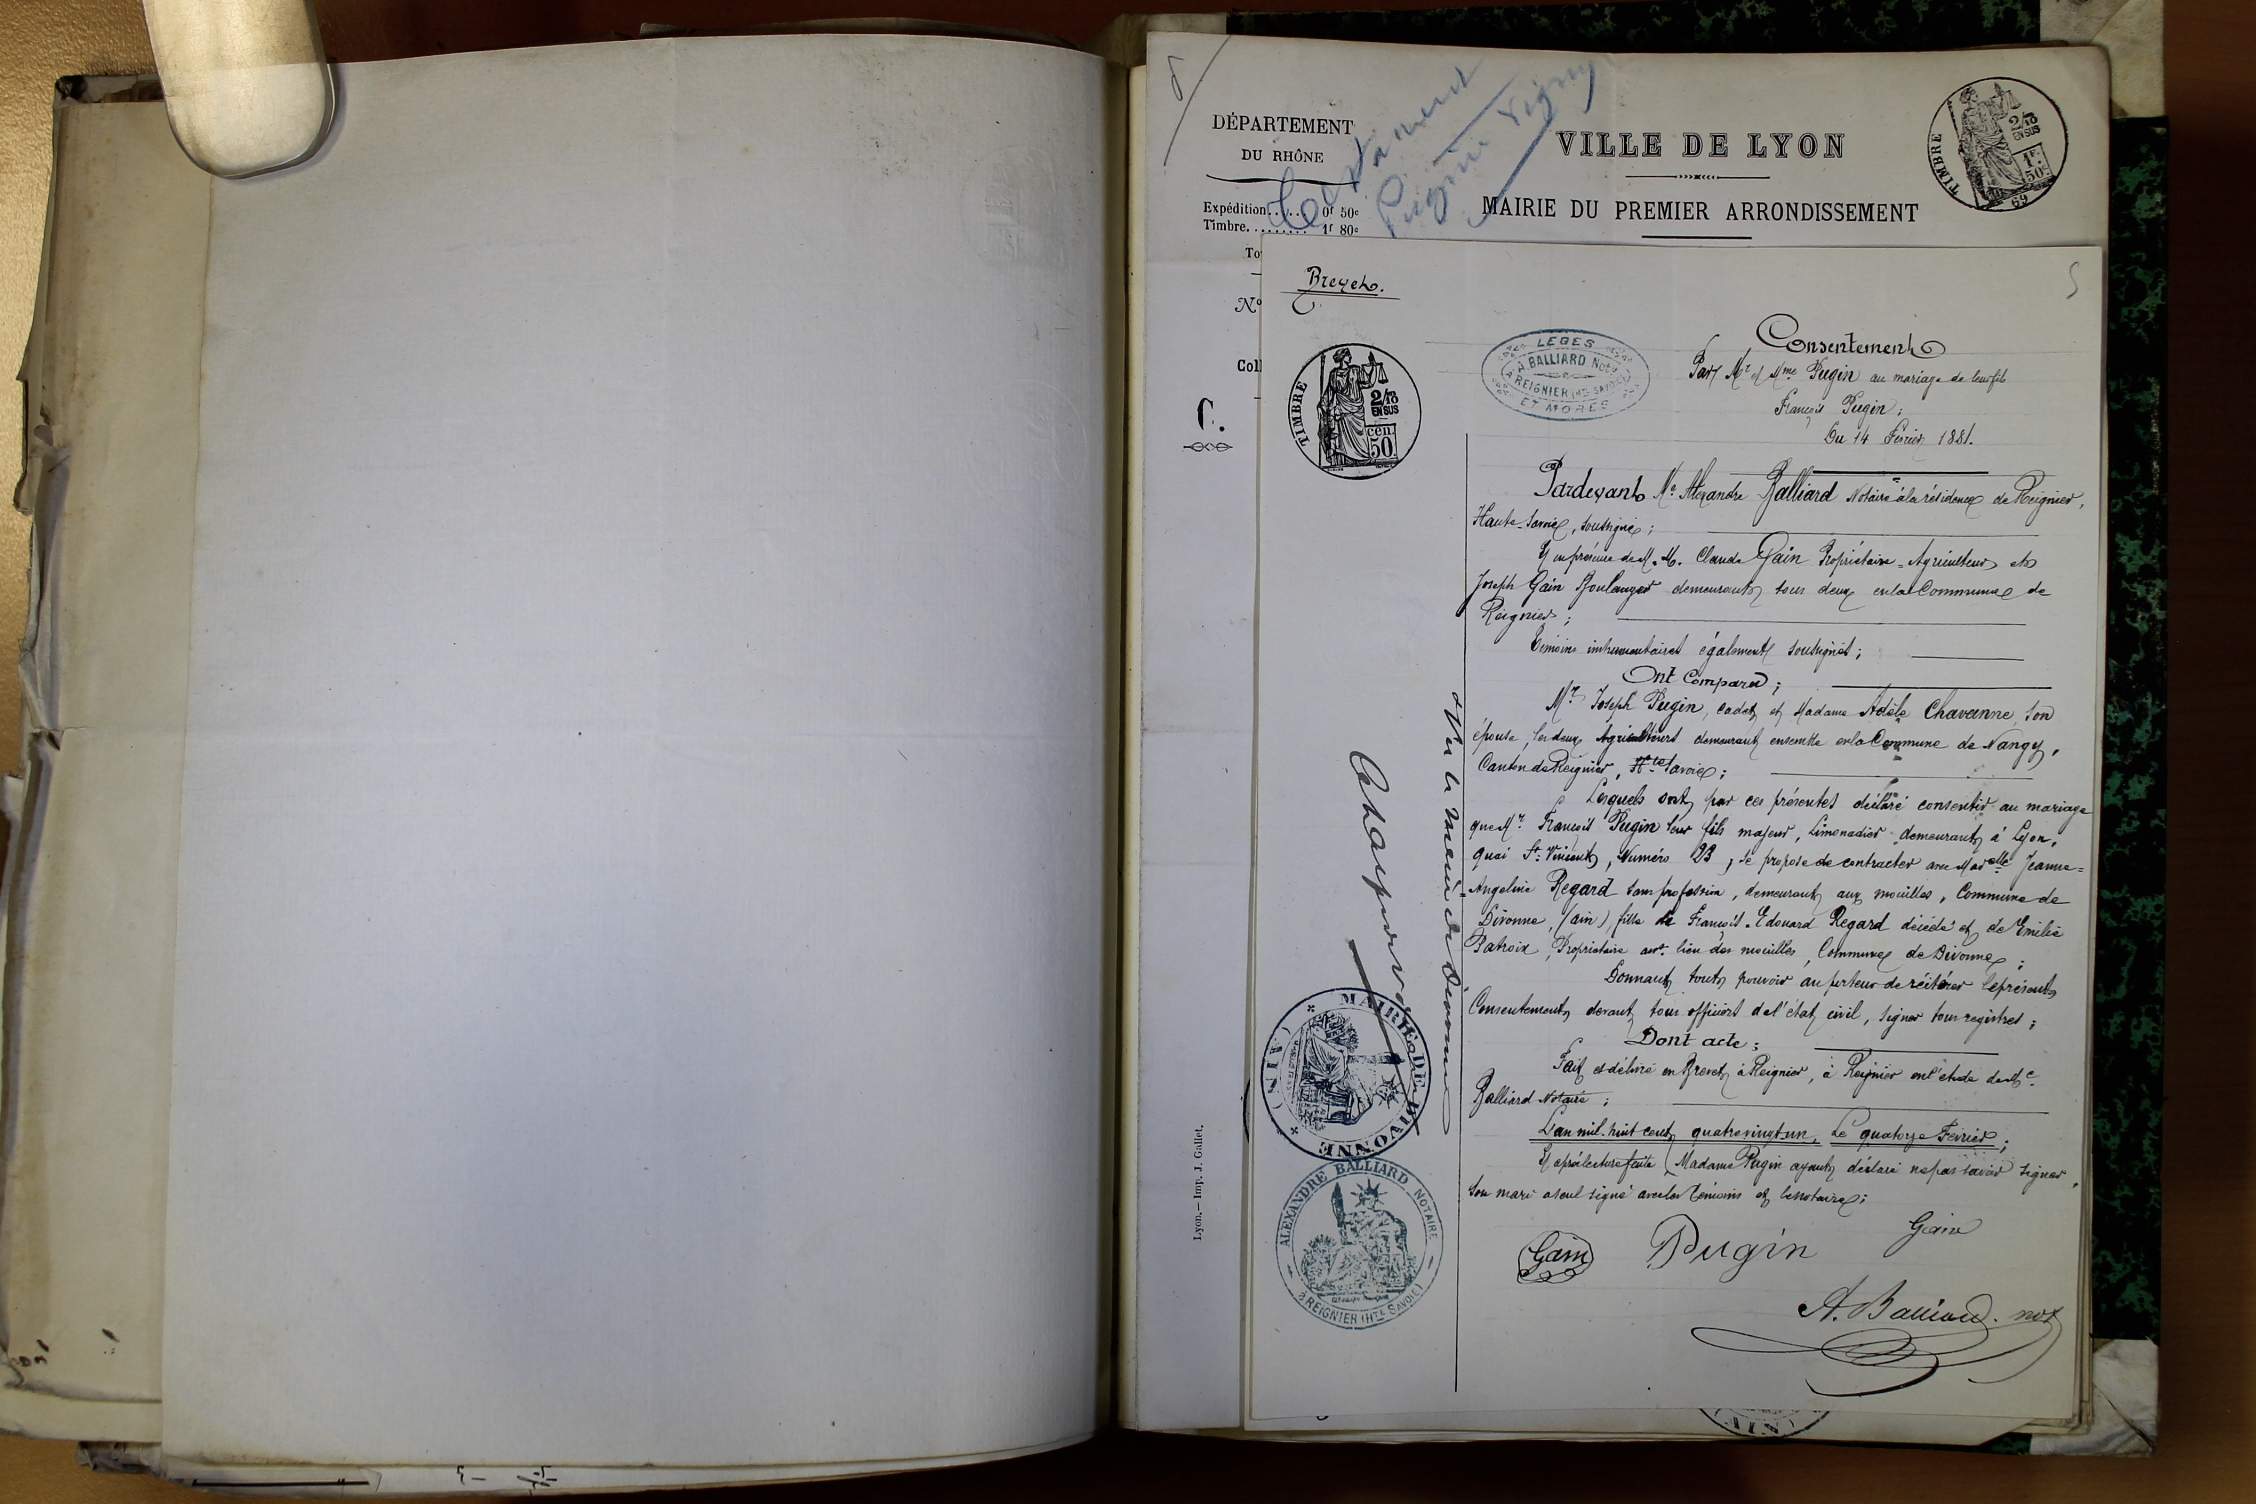 DÉPARTEMENT
DU RHÔNE
Expédition...... 0f 50c
Timbre......... 1f 80c
To
No
Coll
C.
VILLE DE LYON
MAIRIE DU PREMIER ARRONDISSEMENT
TIMBRE 2/10 EN SUS 1F. 50c 69
Pugin
Brevet.
5
TIMBRE 2/10 EN SUS cen. 50
LEGES
A. BALLIARD Notre
A REIGNIER (Hte SAVOIE)
ET MORES
Consentement
Par Mr et Mme Pugin au mariage de leur fils
François Pugin;
Du 14 Février 1881.
Pardevant Me Alexandre Balliard Notaire à la résidence de Reignier,
Haute-Savoie, soussigné;
Et en présence de M. M. Claude Gain Propriétaire-Agriculteur et
Joseph Gain Boulanger demeurant tous deux en la Commune de
Reignier;
Témoins instrumentaires également soussignés;
Ont Comparu;
Mr Joseph Pugin, cadet et Madame Adèle Chavanne, son
épouse, les deux Agriculteurs demeurant ensemble en la Commune de Nangy,
Canton de Reignier, Hte Savoie;
Lesquels ont par ces présentes déclaré consentir au mariage
que Mr François Pugin leur fils majeur, Limonadier demeurant à Lyon,
quai St Vincent, Numéro 23, se propose de contracter avec Madelle Jeanne-
Angeline Regard sans profession, demeurant aux mouilles, Commune de
Divonne, (ain), fille de François-Edouard Regard décédé et de Emilie
Patroix, Propriétaire au lieu des mouilles, Commune de Divonne;
Donnant tout pouvoir au porteur de réitérer le présent
Consentement devant tous officiers de l'état civil, signer tous registres;
Dont acte;
Fait et délivré en Brevet à Reignier, à Reignier en l'étude de Me
Balliard Notaire;
L'an mil-huit cent quatrevingt-un, Le quatorze Février;
Et après lecture faite, Madame Pugin ayant déclaré ne pas savoir signer,
son mari a seul signé avec les témoins et le notaire;
Gain Pugin Gain
A. Balliard. not
Vu le maire de Divonne
MAIRIE DE DIVONNE (AIN)
ALEXANDRE BALLIARD NOTAIRE
à REIGNIER (Hte SAVOIE)
Lyon.— Imp. J. Gallet.